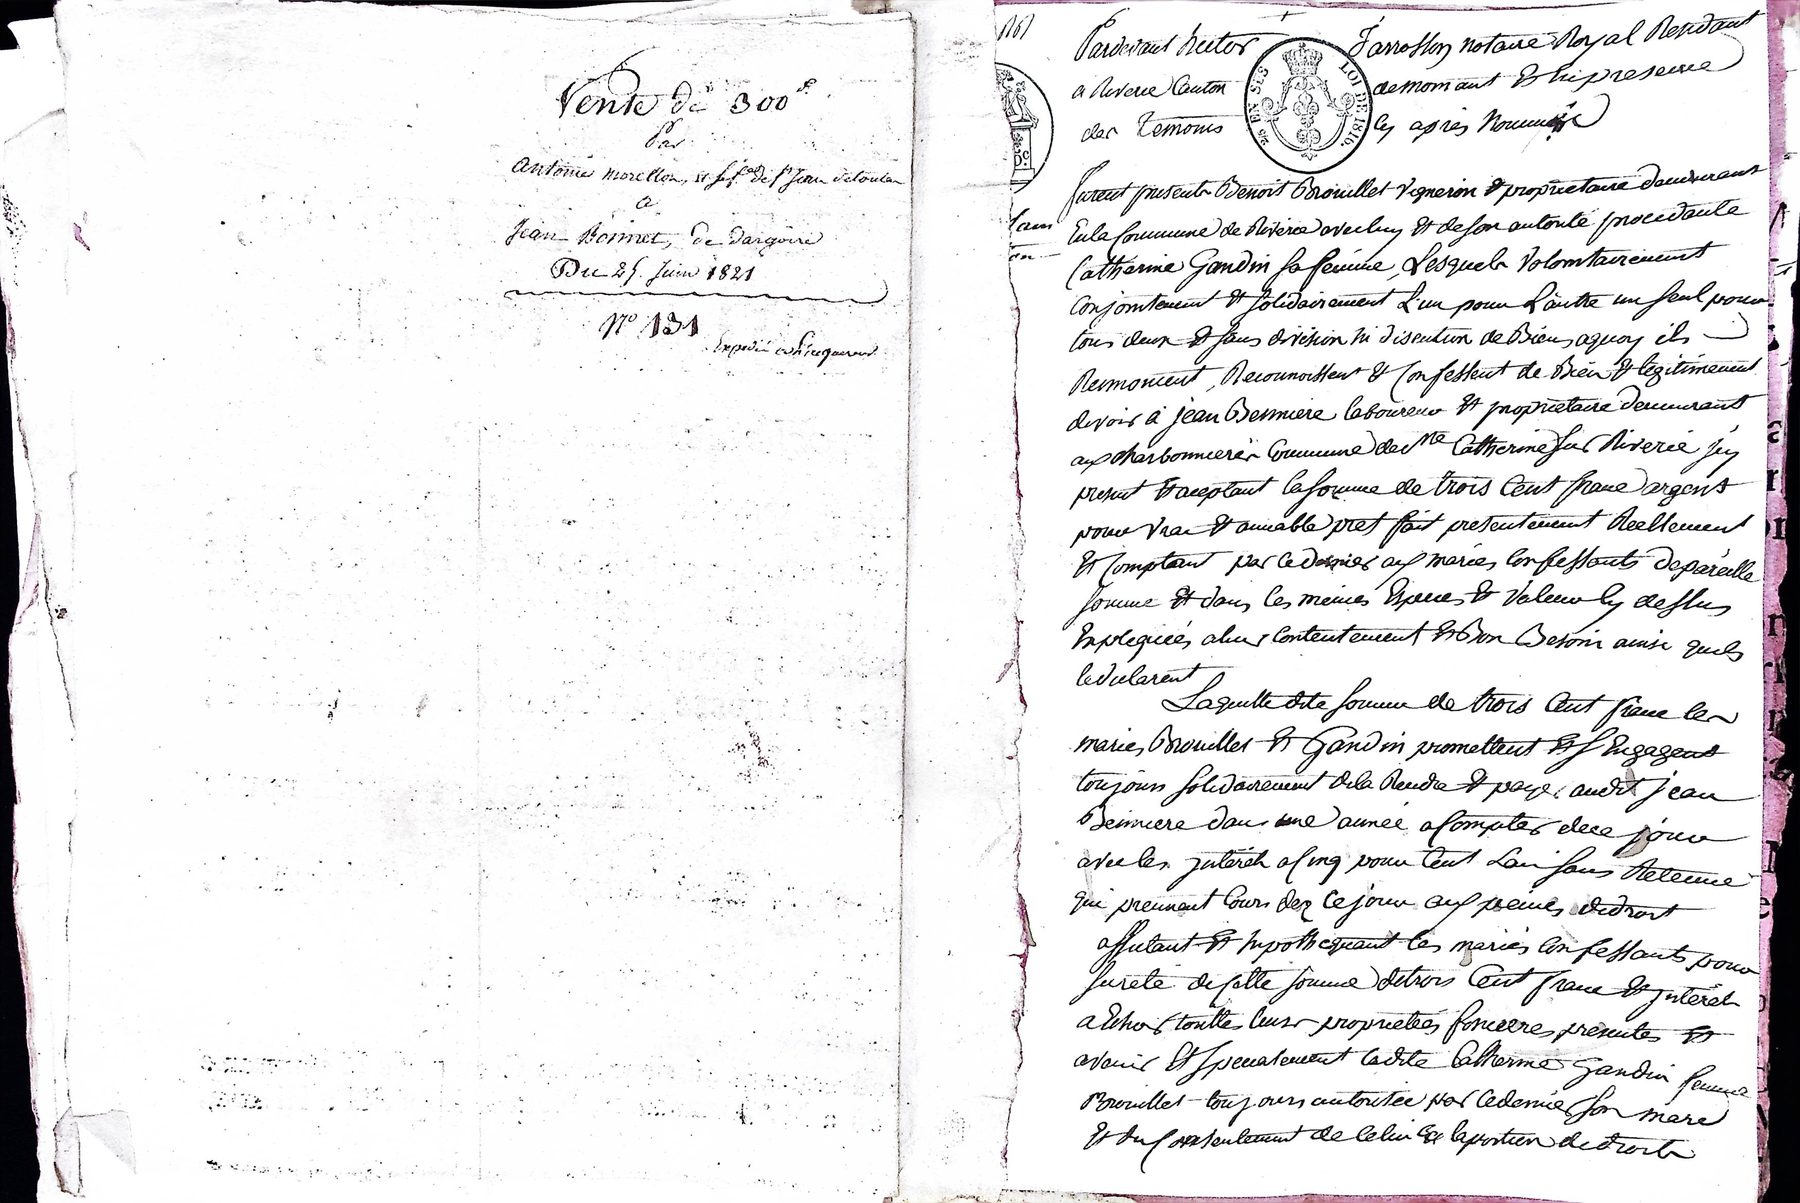 Vente de 300f.
Par
Antoine morellon, et sa f.e de St Jean detoulas
a
Jean Bonnet, de dargoire
Du 25. Juin 1821
N° 131
Expedié
Pardevant hector Jarrosson notaire Royal Residant
a Riverie Canton demornant Et En presence
des temoins Cy après Nommés
2e EN SUS LOI DE 1816.
furent presents Benoit Brouillet vigneron et proprietaire demeurant
En la Commune de Riverie avec luy Et de son autorité procedante
Catherine Gandin sa femme, Lesquels Volontairement
conjointement Et solidairement L'un pour L'autre un seul pour
tous deux Et sans division ni discution de Biens aquoy ils
Renoncent, Reconnoissent Et Confessent de Bien Et legitimement
devoir à jean Besmiere laboureur Et proprietaire demeurant
aux charbonnieres Commune de Ste Catherine sur Riverie jcy
present Et aceptant la somme de trois Cent franc argent
pour vrai Et amiable pret fait presentement Reellement
Et Comptant par ce dernier aux mariés Confessants de pareille
somme Et dans les mêmes Especes Et Valeur Cy dessus
Expliquées a leur contentement Et Bon Besoin ainsi quils
le declarent
Laquelle dite somme de trois Cent franc les
mariés Brouillet Et Gandin promettent Et s'Engagent
toujours solidairement de la Rendre Et payer audit jean
Besmiere dans une année a Compter de ce jour
avec les jnterêts a Cinq pour Cent L'an sans Retenue
qui prennent Cours dez ce jour aux peines de droit
affectant Et hypothequant les mariés Confessants pour
sureté de cette somme de trois Cent franc Et jnterêts
a Echoir touttes leurs proprietées foncieres presentes Et
avenir Et specialement ladite Catherine Gandin femme
Brouillet toujours autorisée par ce dernier son mary
Et du Consentement de celui la portion de droits